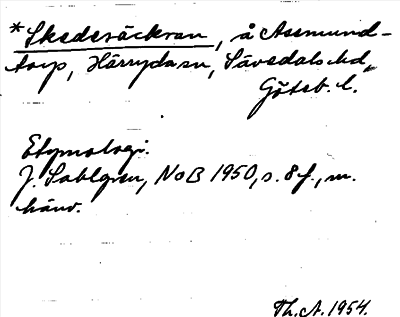 *Skedesräckran, å Assmund-
torp, Härryda sn, Sävedals hd,
Göteb. l.
Etymologi.
J. Sahlgren, NoB 1950, s. 8 f., m.
hänv.
Th. A. 1954.